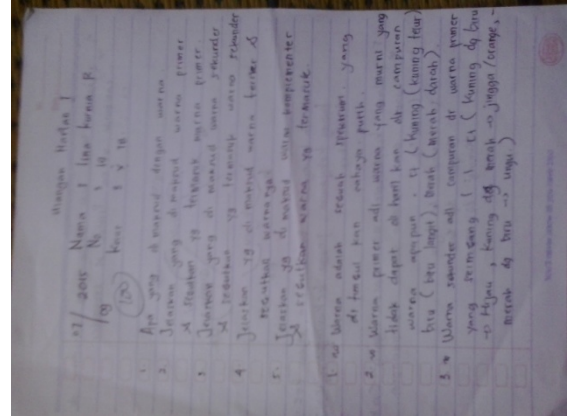 Ulangan Harian 1
Nama : Lina Kurnia
No : 18
Kelas : X
2015
09
100
1. Apa yang di maksud dengan warna
2. Jelaskan yang di maksud warna primer
& sebutkan yg termasuk warna primer.
3. Jelaskan yang di maksud warna sekunder
& sebutkan yg termasuk warna sekunder
4. Jelaskan yg di maksud warna tersier &
sebutkan warnanya!
5. Jelaskan yg di maksud warna komplementer
& sebutkan warna yg termasuk.
1. Warna adalah sebuah spektrum yang
di timbul kan cahaya putih.
2. Warna primer adl warna yang murni yang
tidak dapat di hasil kan dr campuran
warna apapun. (Kuning (kuning telur)
biru (biru langit), merah (merah darah).
3. Warna sekunder adl campuran dr warna primer
yang seimbang 1 : 1. (Kuning dg biru
→ Hijau, Kuning dg merah → jingga/orange,
merah dg biru → ungu.)